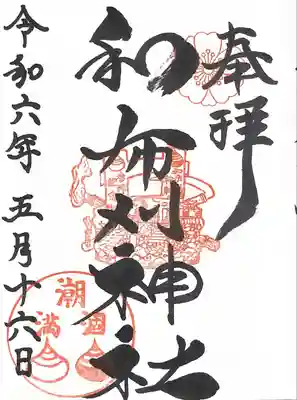 奉拝
和布刈神社
令和六年五月十六日
潮涸
満